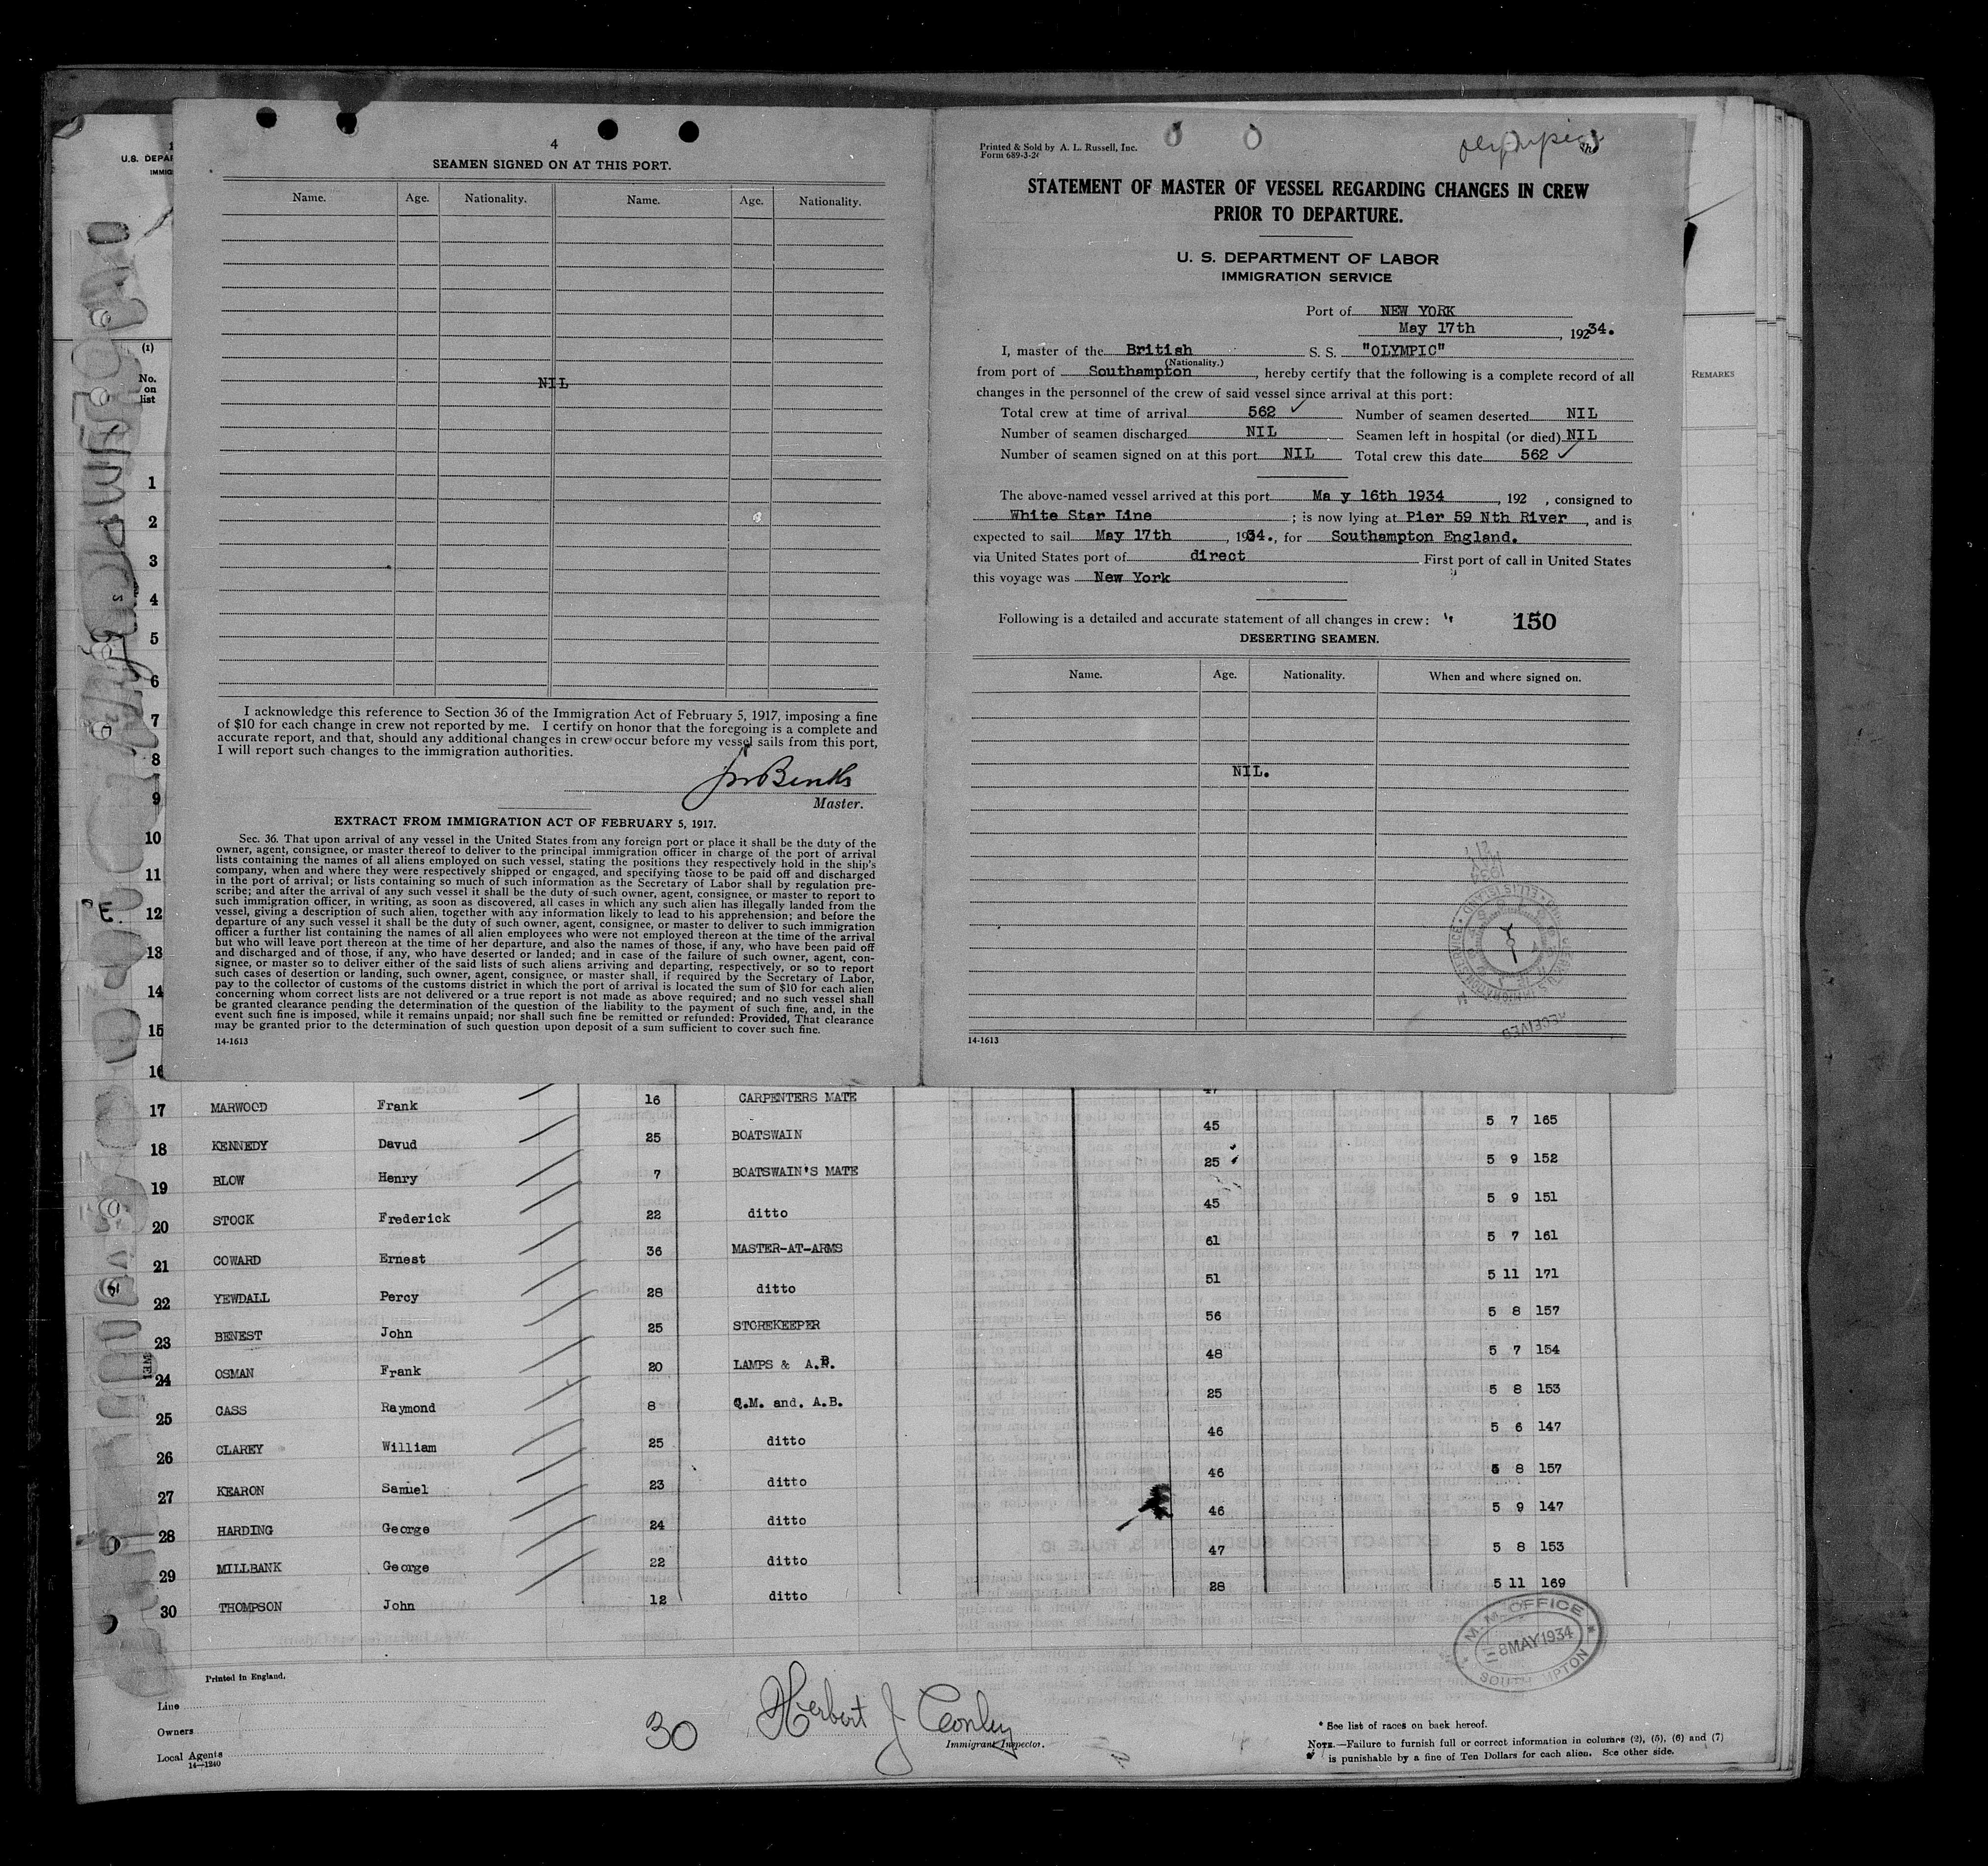 4
SEAMEN SIGNED ON AT THIS PORT.
Name. Age. Nationality. Name. Age. Nationality.
NIL
I acknowledge this reference to Section 36 of the Immigration Act of February 5, 1917, imposing a fine
of $10 for each change in crew not reported by me. I certify on honor that the foregoing is a complete and
accurate report, and that, should any additional changes in crew occur before my vessel sails from this port,
I will report such changes to the immigration authorities.
Master.
EXTRACT FROM IMMIGRATION ACT OF FEBRUARY 5, 1917.
Sec. 36. That upon arrival of any vessel in the United States from any foreign port or place it shall be the duty of the
owner, agent, consignee, or master thereof to deliver to the principal immigration officer in charge of the port of arrival
lists containing the names of all aliens employed on such vessel, stating the positions they respectively hold in the ship's
company, when and where they were respectively shipped or engaged, and specifying those to be paid off and discharged
in the port of arrival; or lists containing so much of such information as the Secretary of Labor shall by regulation pre-
scribe; and after the arrival of any such vessel it shall be the duty of such owner, agent, consignee, or master to report to
such immigration officer, in writing, as soon as discovered, all cases in which any such alien has illegally landed from the
vessel, giving a description of such alien, together with any information likely to lead to his apprehension; and before the
departure of any such vessel it shall be the duty of such owner, agent, consignee, or master to deliver to such immigration
officer a further list containing the names of all alien employees who were not employed thereon at the time of the arrival
but who will leave port thereon at the time of her departure, and also the names of those, if any, who have been paid off
and discharged and of those, if any, who have deserted or landed; and in case of the failure of such owner, agent, con-
signee, or master so to deliver either of the said lists of such aliens arriving and departing, respectively, or so to report
such cases of desertion or landing, such owner, agent, consignee, or master shall, if required by the Secretary of Labor,
pay to the collector of customs of the customs district in which the port of arrival is located the sum of $10 for each alien
concerning whom correct lists are not delivered or a true report is not made as above required; and no such vessel shall
be granted clearance pending the determination of the question of the liability to the payment of such fine, and, in the
event such fine is imposed, while it remains unpaid; nor shall such fine be remitted or refunded: Provided, That clearance
may be granted prior to the determination of such question upon deposit of a sum sufficient to cover such fine.
14-1613
Printed & Sold by A. L. Russell, Inc.
Form 689-3-2
Olympic
STATEMENT OF MASTER OF VESSEL REGARDING CHANGES IN CREW
PRIOR TO DEPARTURE.
U. S. DEPARTMENT OF LABOR
IMMIGRATION SERVICE
Port of NEW YORK
May 17th, 19234.
I, master of the British S. S. "OLYMPIC"
(Nationality.)
from port of Southampton, hereby certify that the following is a complete record of all
changes in the personnel of the crew of said vessel since arrival at this port:
Total crew at time of arrival 562 ✓ Number of seamen deserted NIL
Number of seamen discharged NIL Seamen left in hospital (or died) NIL
Number of seamen signed on at this port NIL Total crew this date 562 ✓
The above-named vessel arrived at this port Ma y 16th 1934, 192 , consigned to
White Star Line ; is now lying at Pier 59 Nth River, and is
expected to sail May 17th, 1934., for Southampton England.
via United States port of direct First port of call in United States
this voyage was New York
Following is a detailed and accurate statement of all changes in crew: 150
DESERTING SEAMEN.
Name. Age. Nationality. When and where signed on.
NIL.
RECEIVED
14-1613
U.S. DEPA
IMMIG
(1)
No.
on
list
REMARKS
1
2
3
4
5
6
7
8
9
10
11
12
13
14
15
16
17 MARWOOD Frank 16 CARPENTERS MATE 47 5 7 165
18 KENNEDY Davud 25 BOATSWAIN 45 5 9 152
19 BLOW Henry 7 BOATSWAIN'S MATE 25 5 9 151
20 STOCK Frederick 22 ditto 45 5 7 161
21 COWARD Ernest 36 MASTER-AT-ARMS 61 5 11 171
22 YEWDALL Percy 28 ditto 51 5 8 157
23 BENEST John 25 STOREKEEPER 56 5 7 154
24 OSMAN Frank 20 LAMPS & A.B. 48 5 8 153
25 CASS Raymond 8 Q.M. and. A.B. 25 5 6 147
26 CLAREY William 25 ditto 46 5 8 157
27 KEARON Samuel 23 ditto 46 5 9 147
28 HARDING George 24 ditto 46 5 8 153
29 MILLBANK George 22 ditto 47 5 11 169
30 THOMPSON John 12 ditto 28
M.M. OFFICE
8 MAY 1934
SOUTHAMPTON
Printed in England.
Line
Owners
Local Agents
14—1240
30
Herbert J Conley
Immigrant Inspector.
* See list of races on back hereof.
NOTE.—Failure to furnish full or correct information in columns (2), (5), (6) and (7)
is punishable by a fine of Ten Dollars for each alien. See other side.